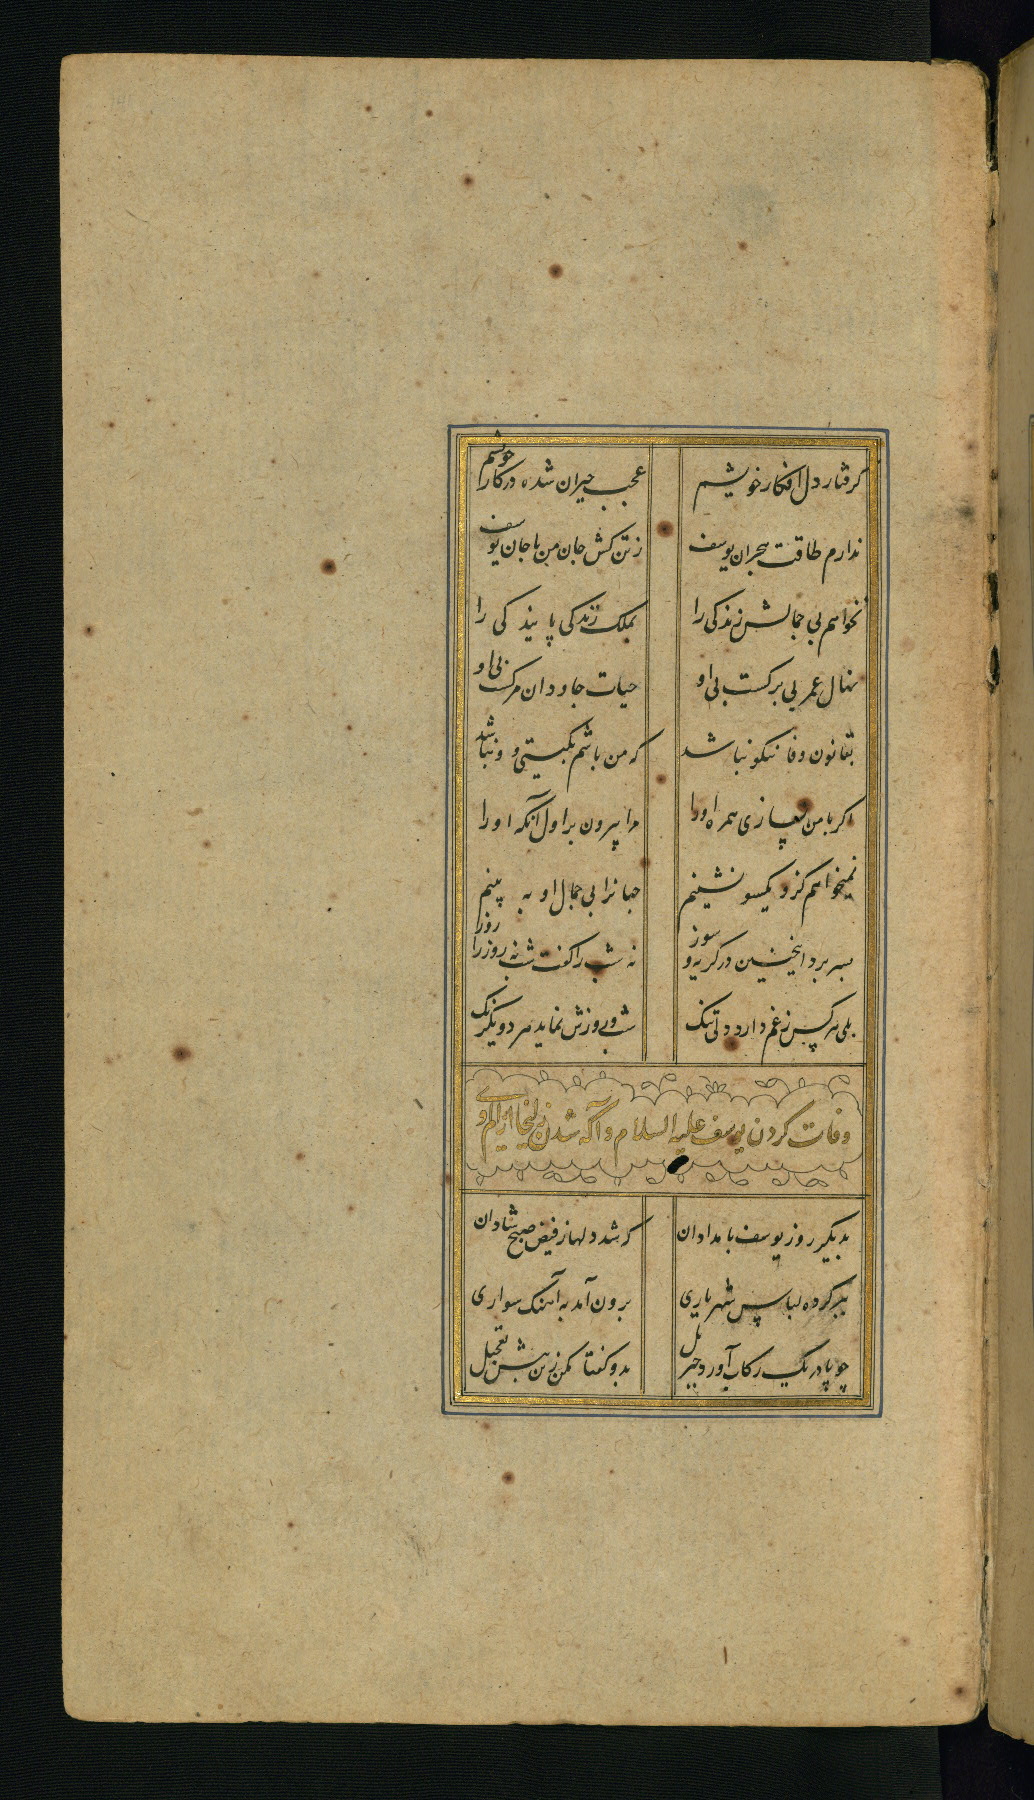 گرفتار دل افکار خویشم عجب حیران شده در کار خویشم
ندارم طاقت هجران یوسف ز تن کش جان من با جان یوسف
نخواهم بی جمالش زندکی را بملک زندکی پایندکی را
نهال عمر بی برکست بی او حیات جاودان مرکست بی او
بقانون وفا نیکو نباشد که من باشم بکیتی و و نباشد
اکر با من نسازی همره او را مرا پیرون بر اول آنکه او را
نمیخواهم کزو یکسو نشینم جهانرا بی جمال او به پینم
بسر برد اینچنین در کریه و سوز نه شب را کفت شب نه روز را روز
بلی هر کس ز غم دارد دلی تنک شب و روزش نماید هر دو یکرنک
وفات کردن یوسف علیه السلام و آکه شدن زلیخا از الم وی
بدیکر روز یوسف بامدادان که شد دلها ز فیض صبح شادان
ببر کرده لباس شهریاری برون آمد به آهنک سواری
چو پا در یک رکاب آورد جبریل بدو کفتا مکن زین پیش تعجیل